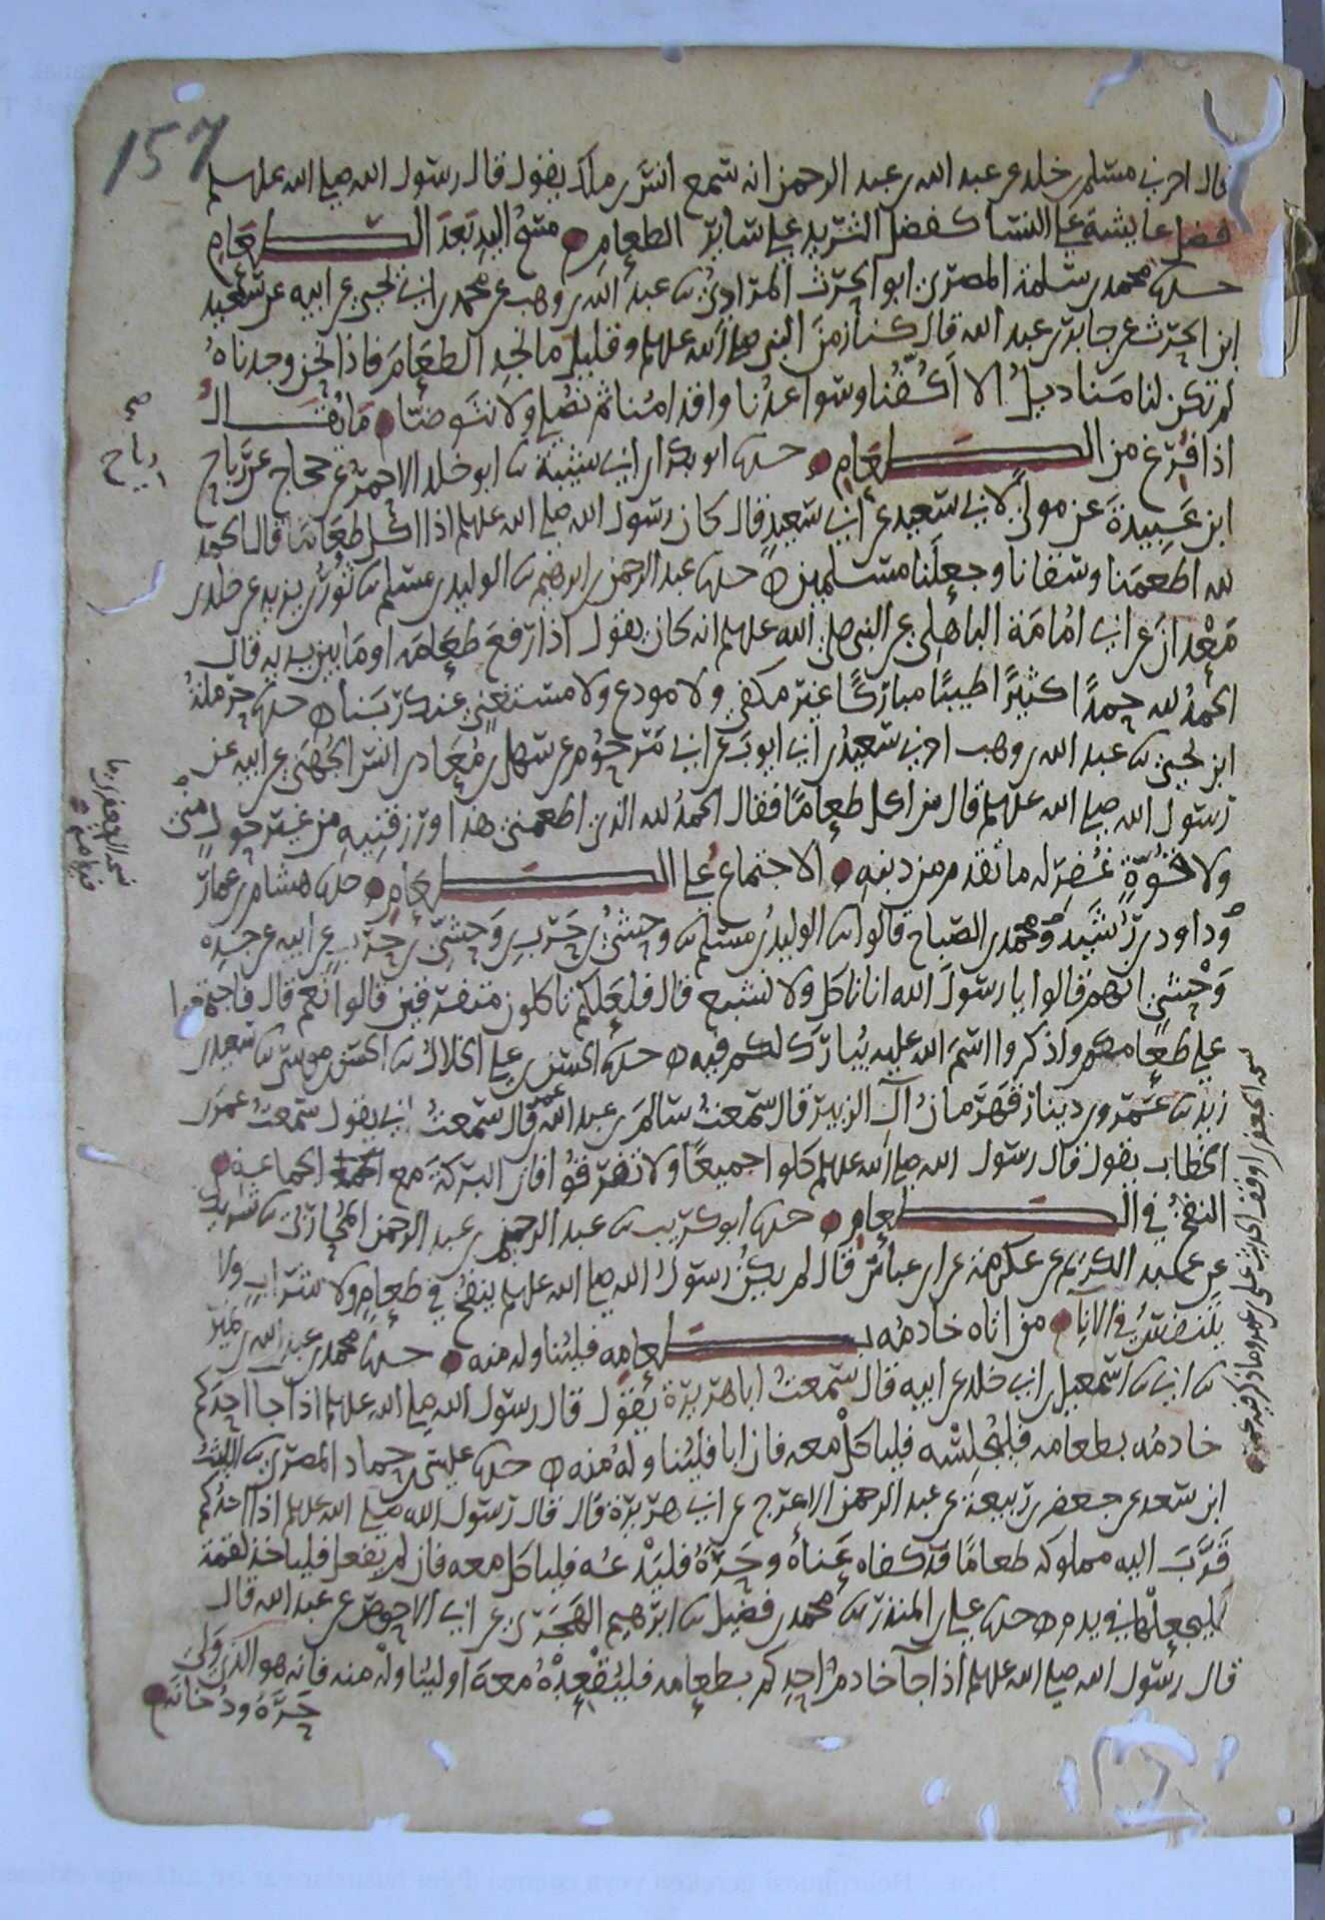 157
قال اخبرني مسلم بن خلد عن عبد الله بن عبد الرحمن انه سمع انس بن ملك يقول قال رسول الله صلى الله عليه وسلم
فضل عايشة على النسا كفضل الثريد على ساير الطعام مسح اليد بعد الطعام
حدثنا محمد بن سلمة المصري ابو الحرث المرادي ثنا عبد الله بن وهب عن محمد بن ابي يحيى عن ابيه عن سعيد
ابن الحرث عن جابر بن عبد الله قال كنا زمن النبي صلى الله عليه وسلم وقليل ما نجد الطعام فاذا نحن وجدناه
لم تكن لنا مناديل الا اكفنا وسواعدنا واقدامنا ثم نصلي ولا نتوضا ما يقال
اذا فرغ من الطعام حدثنا ابو بكر بن ابي شيبة ثنا ابو خلد الاحمر عن حجاج عن رياح
ابن عبيدة عن مولى لابي سعيد عن ابي سعيد قال كان رسول الله صلى الله عليه وسلم اذا اكل طعاما قال الحمد
لله اطعمنا وسقانا وجعلنا مسلمين حدثنا عبد الرحمن بن ابرهيم ثنا الوليد بن مسلم ثنا ثور بن يزيد عن خلد بن
معدان عن ابي امامة الباهلي عن النبي صلى الله عليه وسلم انه كان يقول اذا رفع طعامه او ما بين يديه قال
الحمد لله حمدا كثيرا طيبا مباركا غير مكفي ولا مودع ولا مستغنى عنه ربنا حدثنا حرملة
ابن يحيى ثنا عبد الله بن وهب اخبرني سعيد بن ابي ايوب عن ابي مرحوم عن سهل بن معاذ بن انس الجهني عن ابيه عن
رسول الله صلى الله عليه وسلم قال من اكل طعاما فقال الحمد لله الذي اطعمني هذا ورزقنيه من غير حول مني
ولا قوة غفر له ما تقدم من ذنبه الاجتماع على الطعام حدثنا هشام بن عمار
وداود بن رشيد ومحمد بن الصباح قالوا ثنا الوليد بن مسلم ثنا وحشي بن حرب بن وحشي بن حرب عن ابيه عن جده
وحشي انهم قالوا يا رسول الله انا ناكل ولا نشبع قال فلعلكم تاكلون متفرقين قالوا نعم قال فاجتمعوا
على طعامكم واذكروا اسم الله عليه يبارك لكم فيه حدثنا الحسن بن علي الخلال ثنا الحسن بن موسى ثنا سعيد بن
زيد ثنا عمرو بن دينار قهرمان آل الزبير قال سمعت سالم بن عبد الله بن عمر قال سمعت ابي يقول سمعت عمر بن
الخطاب يقول قال رسول الله صلى الله عليه وسلم كلوا جميعا ولا تفرقوا فان البركة مع الجماعة
النفخ في الطعام حدثنا ابو كريب ثنا عبد الرحيم بن عبد الرحمن المحاربي ثنا شريك
عن عبد الكريم عن عكرمة عن ابن عباس قال لم يكن رسول الله صلى الله عليه وسلم ينفخ في طعام ولا شراب ولا
يتنفس في الانا من اتاه خادمه بطعامه فليناوله منه حدثنا محمد بن عبد الله بن نمير
ثنا ابي ثنا اسمعيل بن ابي خلد عن ابيه قال سمعت ابا هريرة يقول قال رسول الله صلى الله عليه وسلم اذا جا احدكم
خادمه بطعامه فليجلسه فلياكل معه فان ابا فليناوله منه حدثنا عيسى بن حماد المصري ثنا الليث
ابن سعد عن جعفر بن ربيعة عن عبد الرحمن الاعرج عن ابي هريرة قال قال رسول الله صلى الله عليه وسلم اذا احدكم
قرب اليه مملوكه طعاما قد كفاه عناه وحره فليدعه فلياكل معه فان لم يفعل فلياخذ لقمة
فليجعلها في يده حدثنا علي بن المنذر ثنا محمد بن فضيل ثنا ابرهيم الهجري عن ابي الاحوص عن عبد الله قال
قال رسول الله صلى الله عليه وسلم اذا جا خادم احدكم بطعامه فليقعده معه او ليناوله منه فانه هو الذي ولي
حره ودخانه
صح
رياح